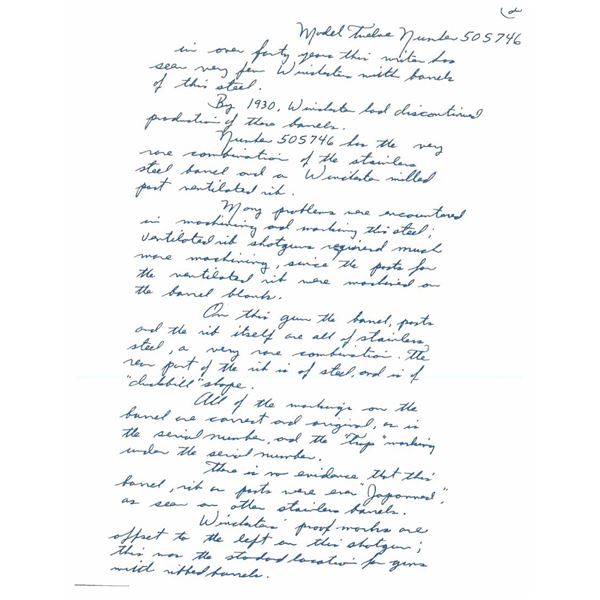 (2
Model Twelve Number 505746
in over forty years this writer has
seen very few Winchesters with barrels
of this steel.
By 1930, Winchester had discontinued
production of these barrels.
Number 505746 has the very
rare combination of the stainless
steel barrel and a Winchester milled
post ventilated rib.
Many problems were encountered
in machining and working this steel;
ventilated rib shotguns required much
more machining, since the posts for
the ventilated rib were machined on
the barrel blanks.
On this gun the barrel, posts
and the rib itself are all of stainless
steel, a very rare combination. The
rear part of the rib is of steel and is of
"duckbill" shape.
All of the markings on the
barrel are correct and original, as is
the serial number, and the "Trap" marking
under the serial number.
There is no evidence that this
barrel, rib or posts were ever "Japanned",
as seen on other stainless barrels.
Winchesters' proof marks are
offset to the left on this shotgun;
this was the standard location for guns
with ribbed barrels.